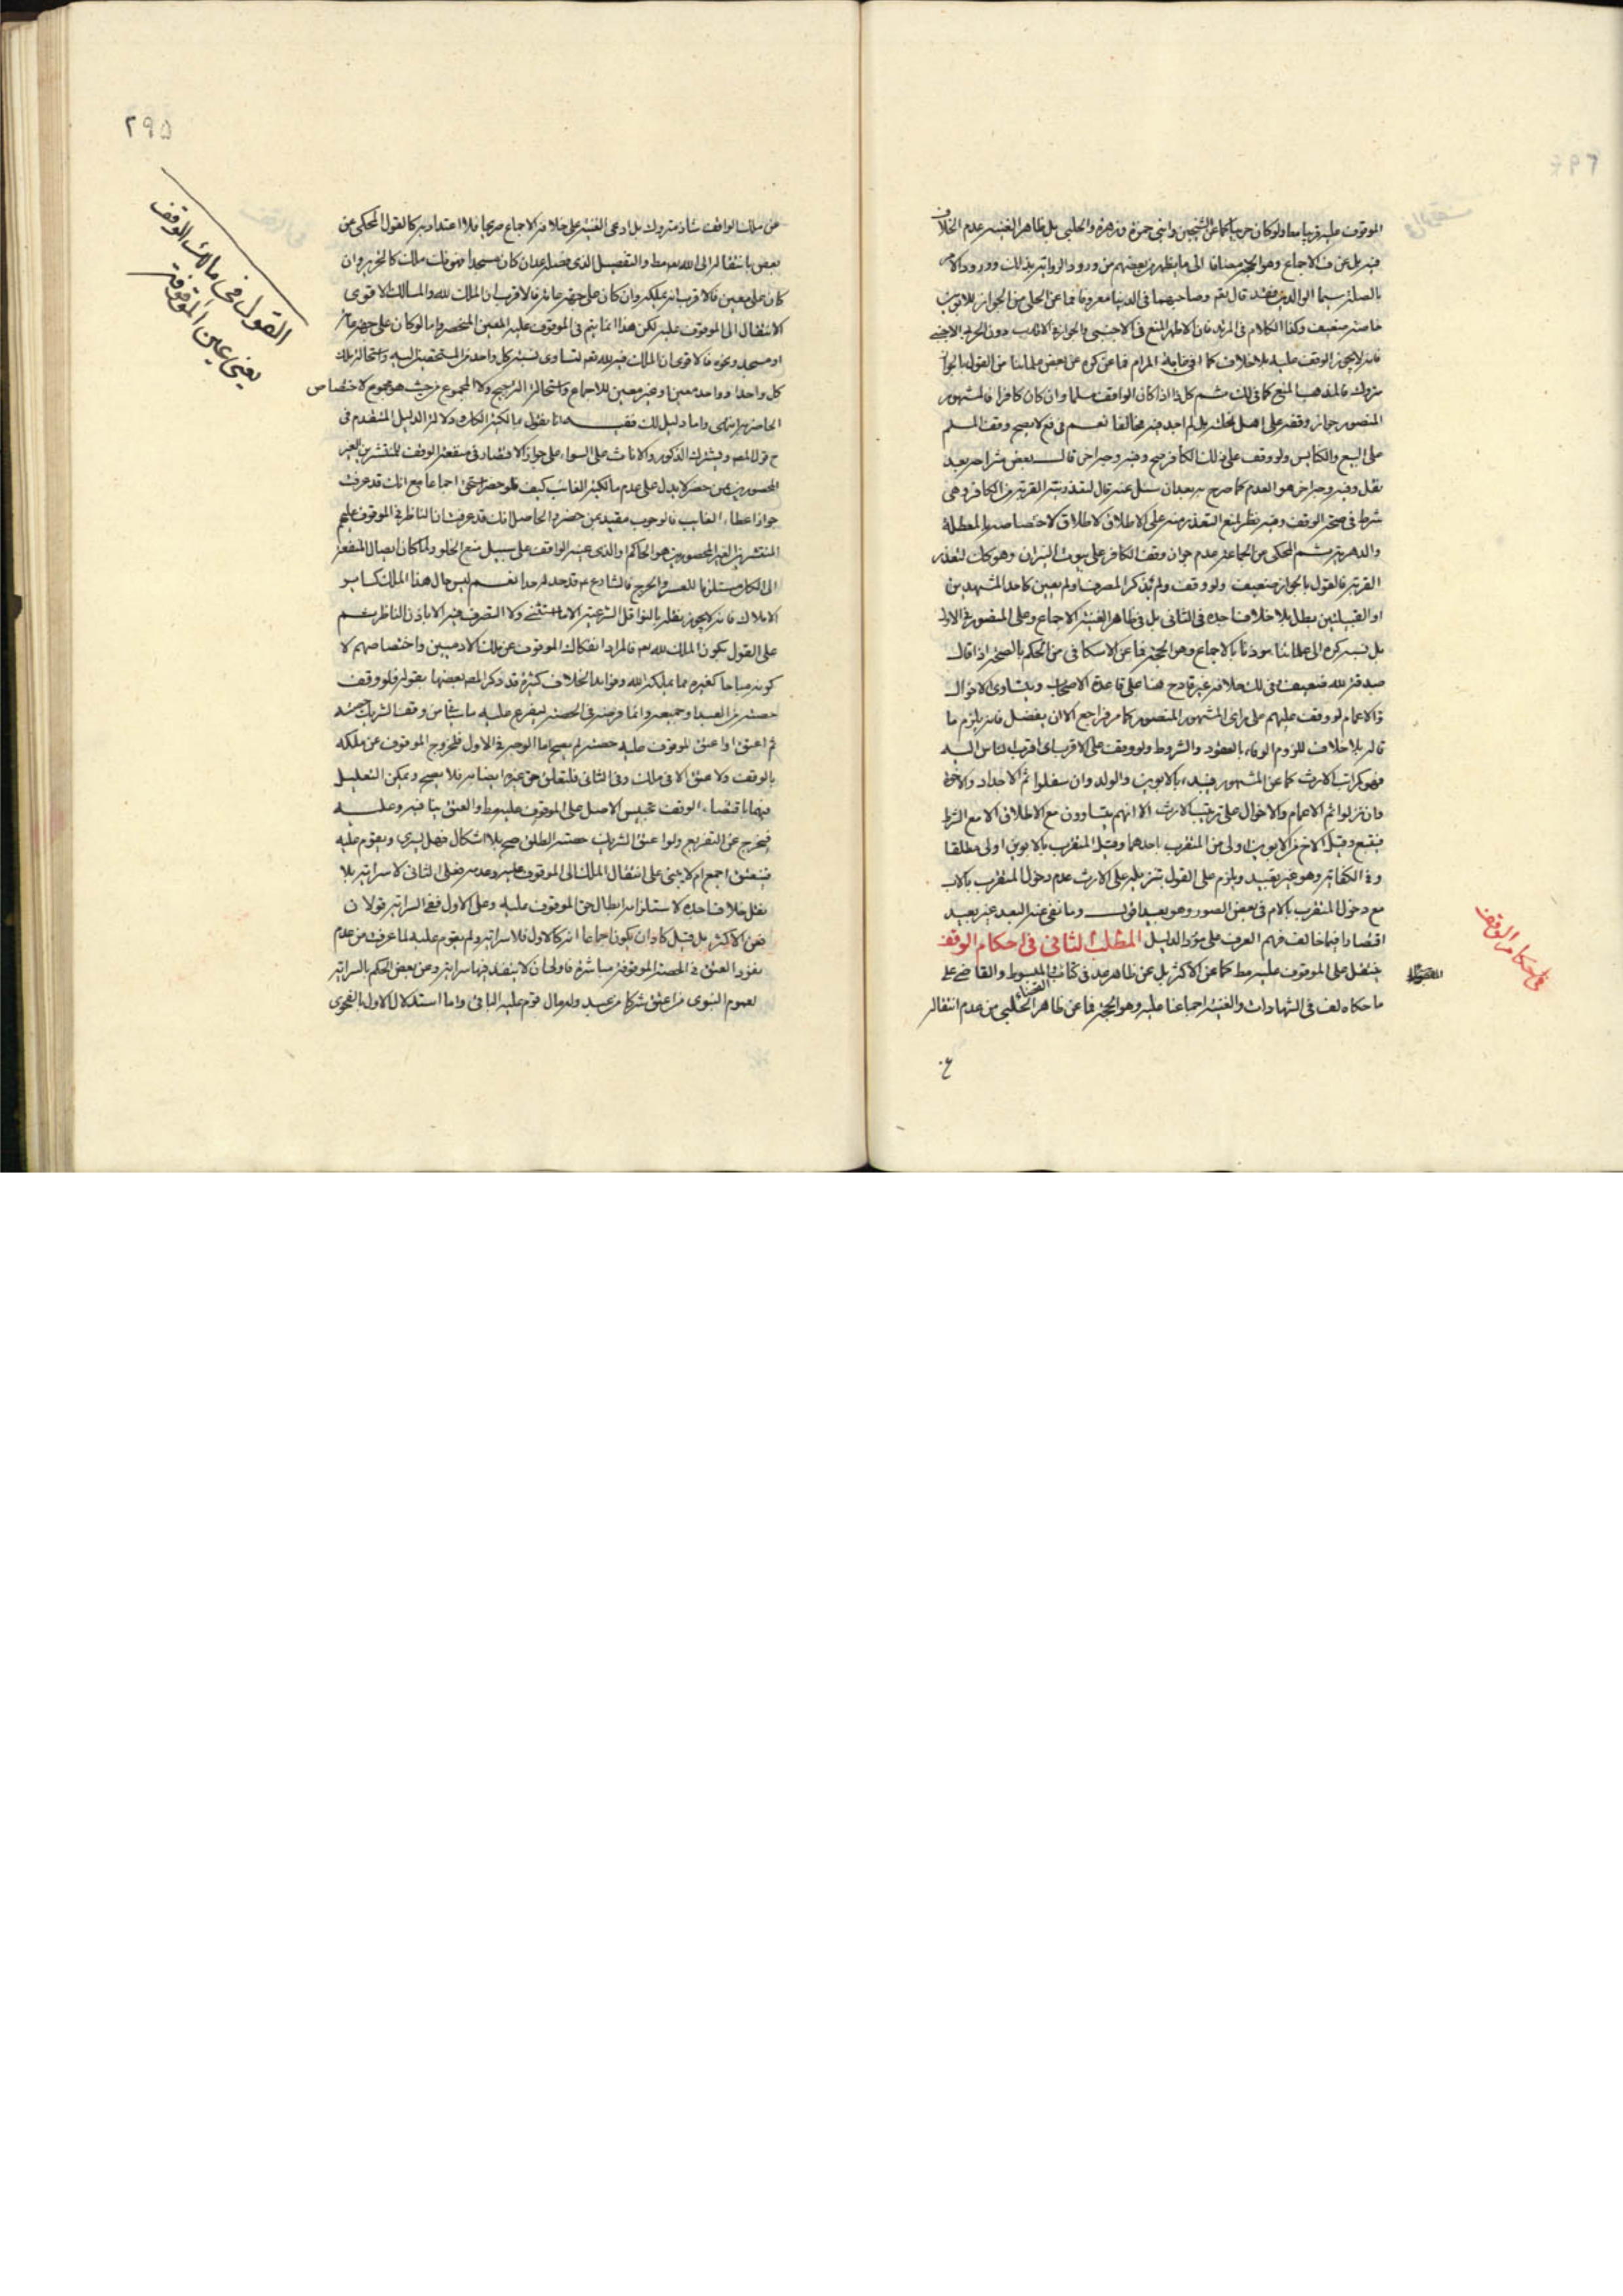 الموقوف عليه قريبا معاد ولو كان حربيا كما عن الشيخين وابني حمزة وزهرة والحلبي بل ظاهر الغنية عدم الخلاف
فيه بل عن ف الاجماع وهو الحجة مضافا الى ما يظهر من بعضهم من ورود الرواية بذلك وورود الامر
بالصلة سيما الوالدين فقد قال نعم وصاحبهما في الدنيا معروفا فما عن الحلي من الجواز للابوين
خاصة ضعيف وكذا الكلام في المرتد فان الاظهر المنع في الاجنبي والجواز في الاقارب دون الحربي الاجنبي
فانه لا يجوز الوقف عليه بلا خلاف كما
متروك فالمذهب المنع كما في لك ثم كل ذا اذا كان الواقف مسلما وان كان كافرا فالمشهور
المنصور جواز وقفه على اهل نحلته بل لم اجد فيه مخالفا نعم في فع لا يصح وقف المسلم
على البيع والكنايس ولو وقف على ذلك الكافر صح وفيه وجه اخر قال بعض شراحه بعد
نقل وفيه وجه اخر هو العدم كما صرح به بعد ان سئل عنه قال لتعذر نية القربة من الكافر وهي
شرط في صحة الوقف وفيه نظر لمنع التعذر منه على الاطلاق لاختصاصه بالمعطلة
والدهرية ثم المحكي عن الجماعة عدم جواز وقف الكافر على بيوت النيران وهو كك لتعذر
القربة فالقول بالجواز ضعيف ولو وقف ولم يذكر المصرف او لم يعين كاحد المشهدين
او القبيلتين بطل بلا خلاف اجده في الثاني بل في ظاهر الغنية الاجماع وعلى المنصور في الاول
بل نسبه كره الى علمائنا موذنا بالاجماع وهو الحجة فما عن الاسكافي من الحكم بالصحة اذا قال
صدقة لله ضعيف في لك خلافه غير قادح هنا على قاعدة الاصحاب ويتساوى الاخوال
والاعمام لو وقف عليهم على راى المشهور المنصور كما مر فراجع الا ان يفضل فانه يلزم ما
قاله بلا خلاف للزوم الوفاء بالعقود والشروط ولو وقف على الاقرب اى اقرب الناس اليه
فهو كمراتب الارث كما عن المشهور فيبدء بالابوين والولد وان سفلوا ثم الاجداد والاخوة
وان نزلوا ثم الاعمام والاخوال على ترتيب الارث الا انهم يتساوون مع الاطلاق الا مع الشرط
فيتبع وقيل الاخ من الابوين اولى من المتقرب باحدهما وقيل المتقرب بالابوين اولى مطلقا
وفي الكفاية وهو غير بعيد ويلزم على القول بتنزيله على الارث عدم دخول المتقرب بالاب
مع دخول المتقرب بالام في بعض الصور وهو بعيد اقول وما نفى عنه البعد غير بعيد
اقتصارا فيما خالف فهم العرف على مورد الدليل المطلب الثاني في احكام الوقف
ينتقل على الموقوف عليه مط كما عن الاكثر بل عن ظاهر صد في كتاب القضاء المبسوط والقاضي على
ما حكاه لف في الشهادات والغنية اجماعنا عليه وهو الحجة فما عن ظاهر الحلبي من عدم انتقاله
في احكام الوقف
٢٩٥
القول في مالك الوقف
يعني عين الموقوفة
عن ملك الواقف شاذ متروك بل ادعى الغنية على خلافه الاجماع صريحا فلا اعتداد به كالقول المحكي عن
بعض بانتقاله الى الله نعم مط والتفصيل الذي فصله عد ان كان مسجدا فهو فك ملك كالتحرير وان
كان على معين فالاقرب انه يملكه وان كان على جهة عامة فالاقرب ان الملك لله والمسالك الاقوى
الانتقال الى الموقوف عليه لكن هذا انما يتم في الموقوف عليه المعين المنحصر واما لو كان على جهة عامة
او مسجد ونحوه فالاقوى ان الملك فيه لله نعم لتساوى نسبة كل واحد من المستحقين اليه واستحالة ملك
كل واحد او واحد معين او غير معين للاجماع واستحالة الترجيح ولا المجموع من حيث هو مجموع لاختصاص
الحاضر به انتهى واما دليل لك ففيه انا نقول بمالكية الكل ولا لدلالة الدليل المتقدم في
ح قول المص ويشترك الذكور والاناث على السواء على جواز الاقتصار في منفعة الوقف للمنتشرين الغير
المحصورين بمن حضر لا يدل على عدم مالكية الغائب كيف ولو حضر استحق اجماعا مع انك قد عرفت
جواز اعطاء الغايب فالوجوب مقيد بمن حضر والحاصل انك قد عرفت ان الناظر في الموقوف عليهم
المنتشرين الغير المحصورين هو الحاكم او الذي عينه الواقف على سبيل منع الخلو ولما كان ايصال المنفعة
الى الكل مستلزما للعسر والحرج فالشارع نعم قد حد له حدا نعم ليس حال هذا الملك كساير
الاملاك فانه لا يجوز نقله بالنواقل الشرعية الا ما استثنى ولا التصرف فيه الا باذن الناظر نعم
على القول بكون الملك لله نعم فالمراد انفكاك الموقوف عن ملك الادميين واختصاصهم لا
كونه مباحا كغيره مما يملكه الله وفوايد الخلاف كثيرة قد ذكر المص بعضها بقوله فلو وقف
حصته من العبد او جميعه وانما فرضه في الحصة ليفرع عليه ما سيأتي من وقف الشريك حصته
ثم اعتق او اعتق الموقوف عليه حصته لم يصح اما الوجه في الاول فلخروج الموقوف عن ملكه
بالوقف ولا عتق الا في ملك وفي الثاني فلتعلق حق غيره ايضا به فلا يصح ويمكن التعليل
فيهما باقتضاء الوقف تحبيس الاصل على الموقوف عليه مط والعتق ينافيه وعليه
فيخرج عن التفريع ولو اعتق الشريك حصته الطلق صح بلا اشكال فهل يسري ويقوم عليه
فينعتق اجمع ام لا يبنى على انتقال الملك الى الموقوف عليه وعدمه فعلى الثاني لا سراية بلا
نقل خلاف اجده لاستلزامه ابطال حق الموقوف عليه وعلى الاول ففي السراية قولان
فعن الاكثر بل قيل كاد ان يكون اجماعا انه كالاول فلا سراية ولم يقوم عليه لما عرفت من عدم
نفوذ العتق في الحصة الموقوفة مباشرة فاولى ان لا ينفذ فيها سراية وعن بعض الحكم بالسراية
لعموم النبوي من اعتق شركا من عبد وله مال قوم عليه الباقي واما استدلال الاول بالفحوى